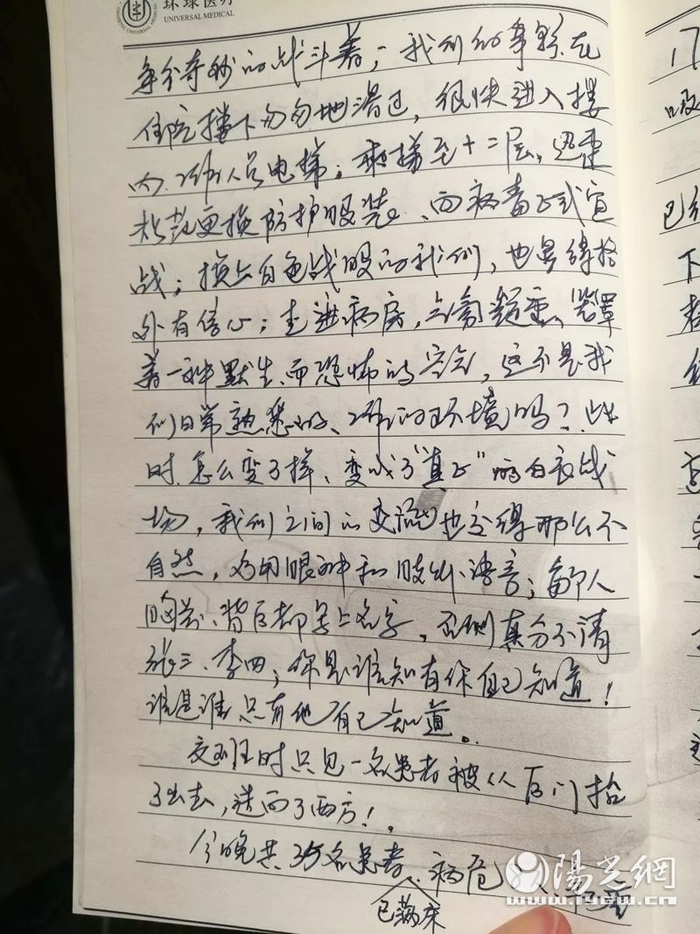 环球医疗
UNIVERSAL MEDICAL
争分夺秒的战斗着，我们的身影在
住院楼下匆匆地滑过，很快进入楼
内工作人员电梯；乘梯至十二层，迅速
更换防护服装、向病毒正式宣
战；换上白色战服的我们，也显得格
外有信心；走进病房，气氛凝重、笼罩
着一种默生而恐怖的安念，这不是我
们日常熟悉的、工作的环境吗？此
时怎么变了样、变成了“真正”的白衣战
场，我们之间的交流也变得那么不
自然，多用眼神和肢体语言；每个人
胸前、背后都写上名字，否则真分不清
张三、李四；你是谁只有你自己知道！
谁是谁只有他自己知道。
交班时只见一名患者被从后门抬
了出去，送向了西方！
今晚共35名患者、病危
已满床
17
吸
已
下
陽光網